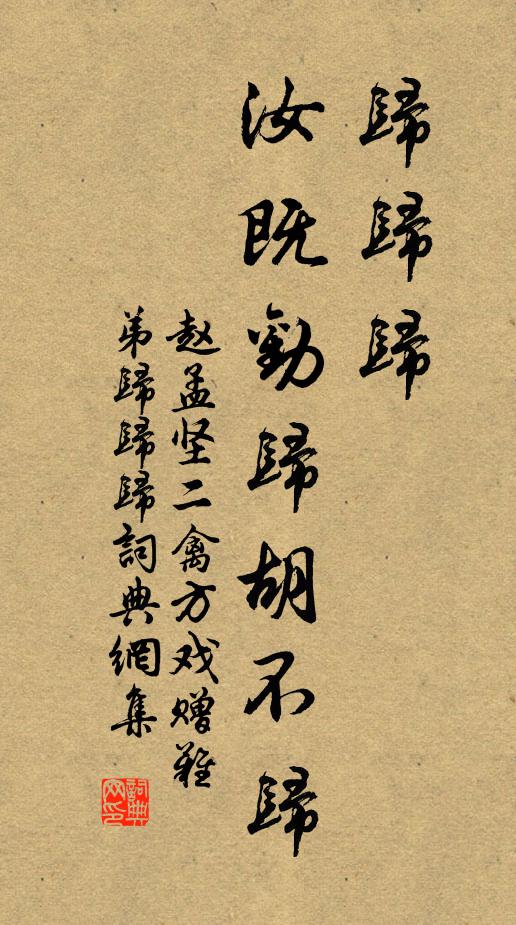 歸歸歸
汝既勸歸胡不歸
赵孟坚二禽方戏赠难
弟歸歸歸詞典網集
詞典网印